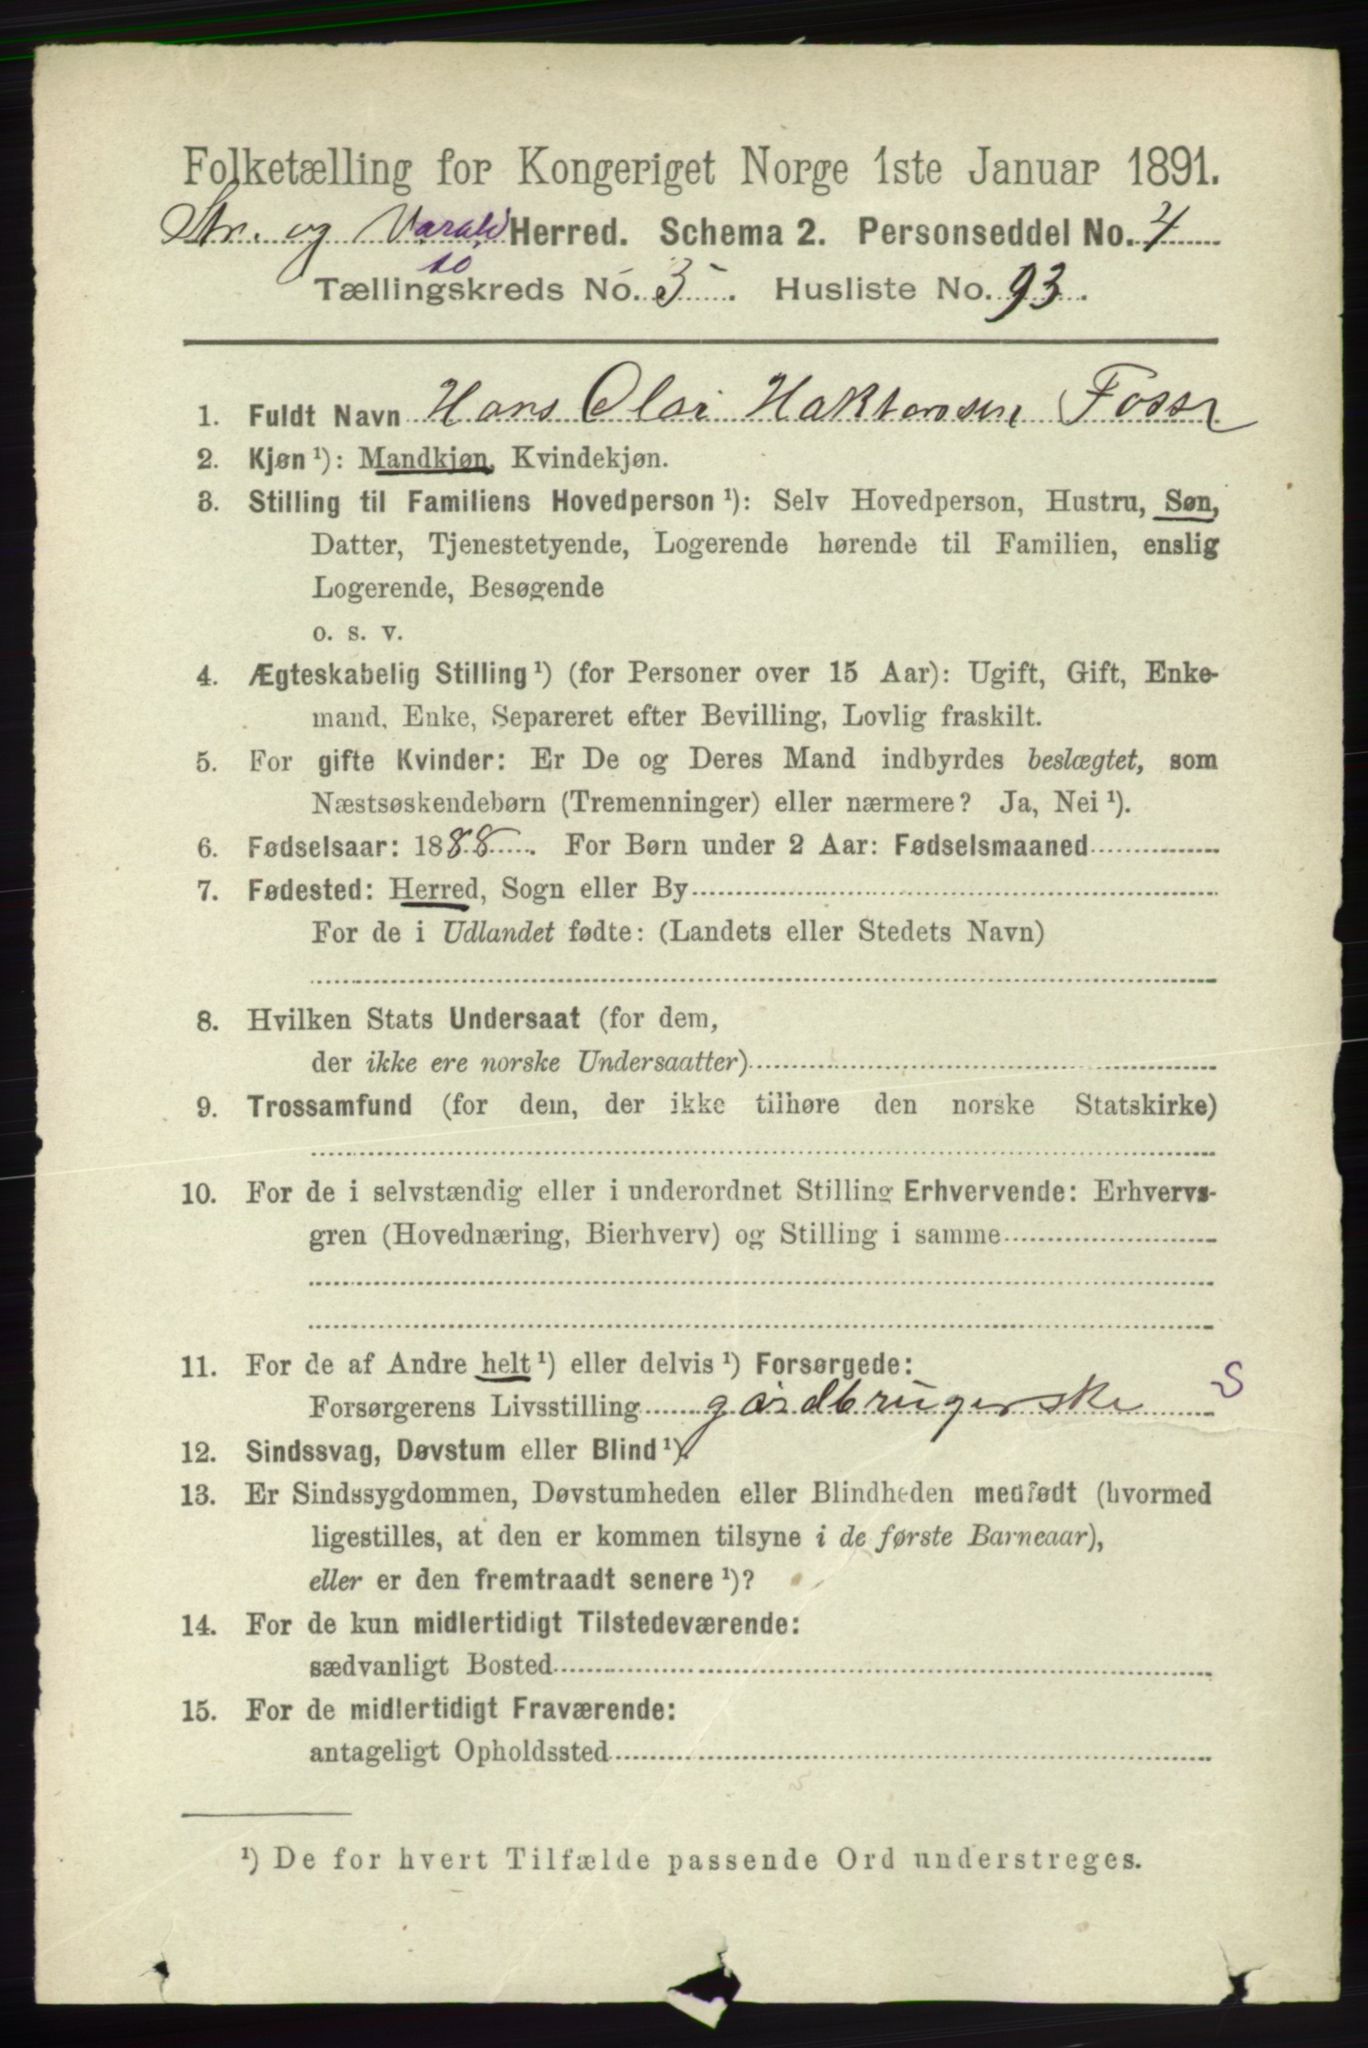 Folketælling for Kongeriget Norge 1ste Januar 1891.
Str. og Varald Herred. Schema 2. Personseddel No. 4
10
Tællingskreds No. 3. Husliste No. 93.
1. Fuldt Navn Hans Olai Foss
2. Kjøn ¹): Mandkjøn, Kvindekjøn.
3. Stilling til Familiens Hovedperson ¹): Selv Hovedperson, Hustru, Søn,
Datter, Tjenestetyende, Logerende hørende til Familien, enslig
Logerende, Besøgende
o. s. v.
4. Ægteskabelig Stilling ¹) (for Personer over 15 Aar): Ugift, Gift, Enke-
mand, Enke, Separeret efter Bevilling, Lovlig fraskilt.
5. For gifte Kvinder: Er De og Deres Mand indbyrdes beslægtet, som
Næstsøskendebørn (Tremenninger) eller nærmere? Ja, Nei ¹).
6. Fødselsaar: 1888. For Børn under 2 Aar: Fødselsmaaned
7. Fødested: Herred, Sogn eller By
For de i Udlandet fødte: (Landets eller Stedets Navn)
8. Hvilken Stats Undersaat (for dem,
der ikke ere norske Undersaatter)
9. Trossamfund (for dem, der ikke tilhøre den norske Statskirke)
10. For de i selvstændig eller i underordnet Stilling Erhvervende: Erhvervs-
gren (Hovednæring, Bierhverv) og Stilling i samme
11. For de af Andre helt ¹) eller delvis ¹) Forsørgede:
Forsørgerens Livsstilling gårdbrugerske S
12. Sindssvag, Døvstum eller Blind ¹).
13. Er Sindssygdommen, Døvstumheden eller Blindheden medfødt (hvormed
ligestilles, at den er kommen tilsyne i de første Barneaar),
eller er den fremtraadt senere ¹)?
14. For de kun midlertidigt Tilstedeværende:
sædvanligt Bosted
15. For de midlertidigt Fraværende:
antageligt Opholdssted
¹) De for hvert Tilfælde passende Ord understreges.